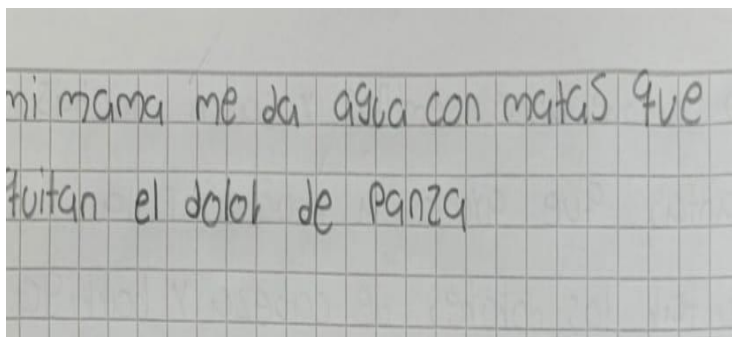 mi mama me da agua con matas que
quitan el dolor de panza